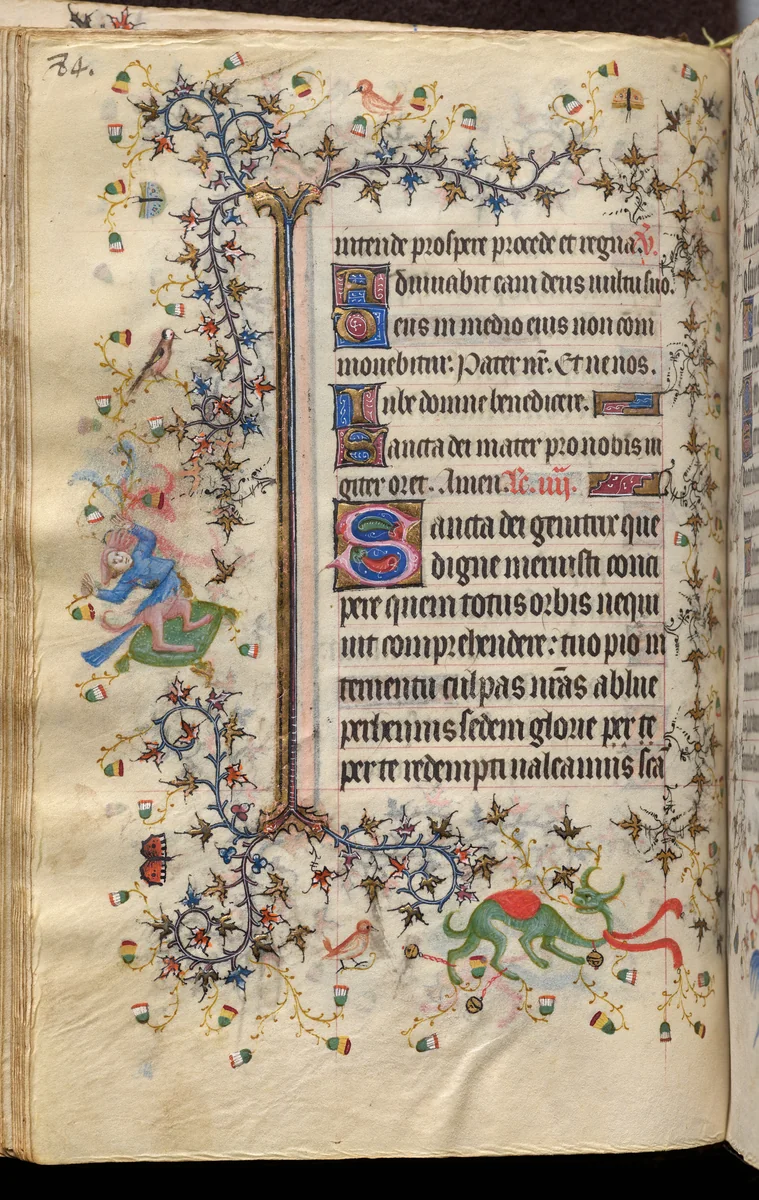 84.
intende prospere procede et regna. V̄.
Adiuvabit eam deus vultu suo.
Deus in medio eius non com
movebitur. Pater nr̄. Et ne nos.
Iube domne benedicere.
Sancta dei mater pro nobis in
giter oret. Amen. Lc̄. iiij.
Sancta dei genitrix que
digne meruisti conci
pere quem totus orbis nequi
vit comprehendere: tuo pio in
terventu culpas nr̄as ablue
perhennis sedem glorie per te
per te redempti valeamus scā